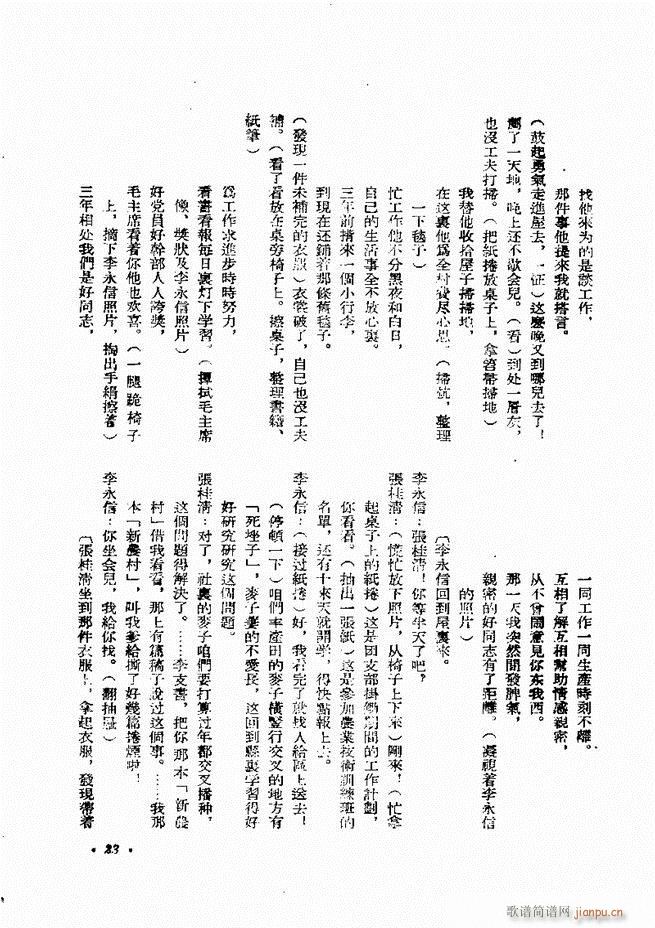 找他来为的是談工作，
那件事他提来我就搭言。
（鼓起勇氣走進屋去，一怔）这麽晚又到哪兒去了！
了一天地，晚上还不歇会兒。（看）到处一層灰，
也沒工夫打掃。（把紙捲放桌子上，拿笤帚掃地）
我替他收拾屋子掃掃地，
在这裏他爲全村費尽心思。（掃炕，整理
一下毯子）
忙工作他不分黑夜和白日，
自己的生活事全不放心裏。
三年前揹来一個小行李，
到現在还鋪着那條舊毯子。
（發現一件未補完的衣服）衣裳破了，自己也沒工夫
補。（看了看放在桌旁椅子上。擦桌子，整理書籍、
紙筆）
爲工作求進步時時努力，
看書看報每日裏灯下学習。（擦拭毛主席
像、奬狀及李永信照片）
好党員好幹部人人誇奬，
毛主席看着你他也欢喜。（一腿跪椅子
上，摘下李永信照片，掏出手絹擦着）
三年相处我們是好同志，
一同工作一同生產時刻不離。
互相了解互相幫助情感親密，
从不曾鬧意見你东我西。
那一天我突然間發脾氣，
親密的好同志有了距離。（凝視着李永信
的照片）
〔李永信回到屋裏来。
李永信：張桂清！你等半天了吧，
張桂清：（慌忙放下照片，从椅子上下来）剛来！（忙拿
起桌子上的紙捲）这是团支部掛鋤期間的工作計劃，
你看看。（抽出一張紙）这是參加農業技術訓練班的
名單，还有十来天就開学，得快點報上去。
李永信：（接过紙捲）好，我看完了就找人給區上送去！
（停頓一下）咱們丰產田的麥子橫豎行交叉的地方有
「死垤子」，麥子婁的不愛長，这回到縣裏学習得好
好研究研究这個問題。
張桂清：对了，社裏的麥子咱們要打算过年都交叉播种，
这個問題得解決了。……李支書，把你那本「新農
村」借我看看，那上有篇稿子說过这個事。……我那
本「新農村」，叫我爹給撕了好幾篇捲烟啦！
李永信：你坐会兒，我給你找。（翻抽屜）
〔張桂清坐到那件衣服上，拿起衣服，發現帶着
• 23 •
歌谱简谱网 jianpu.cn